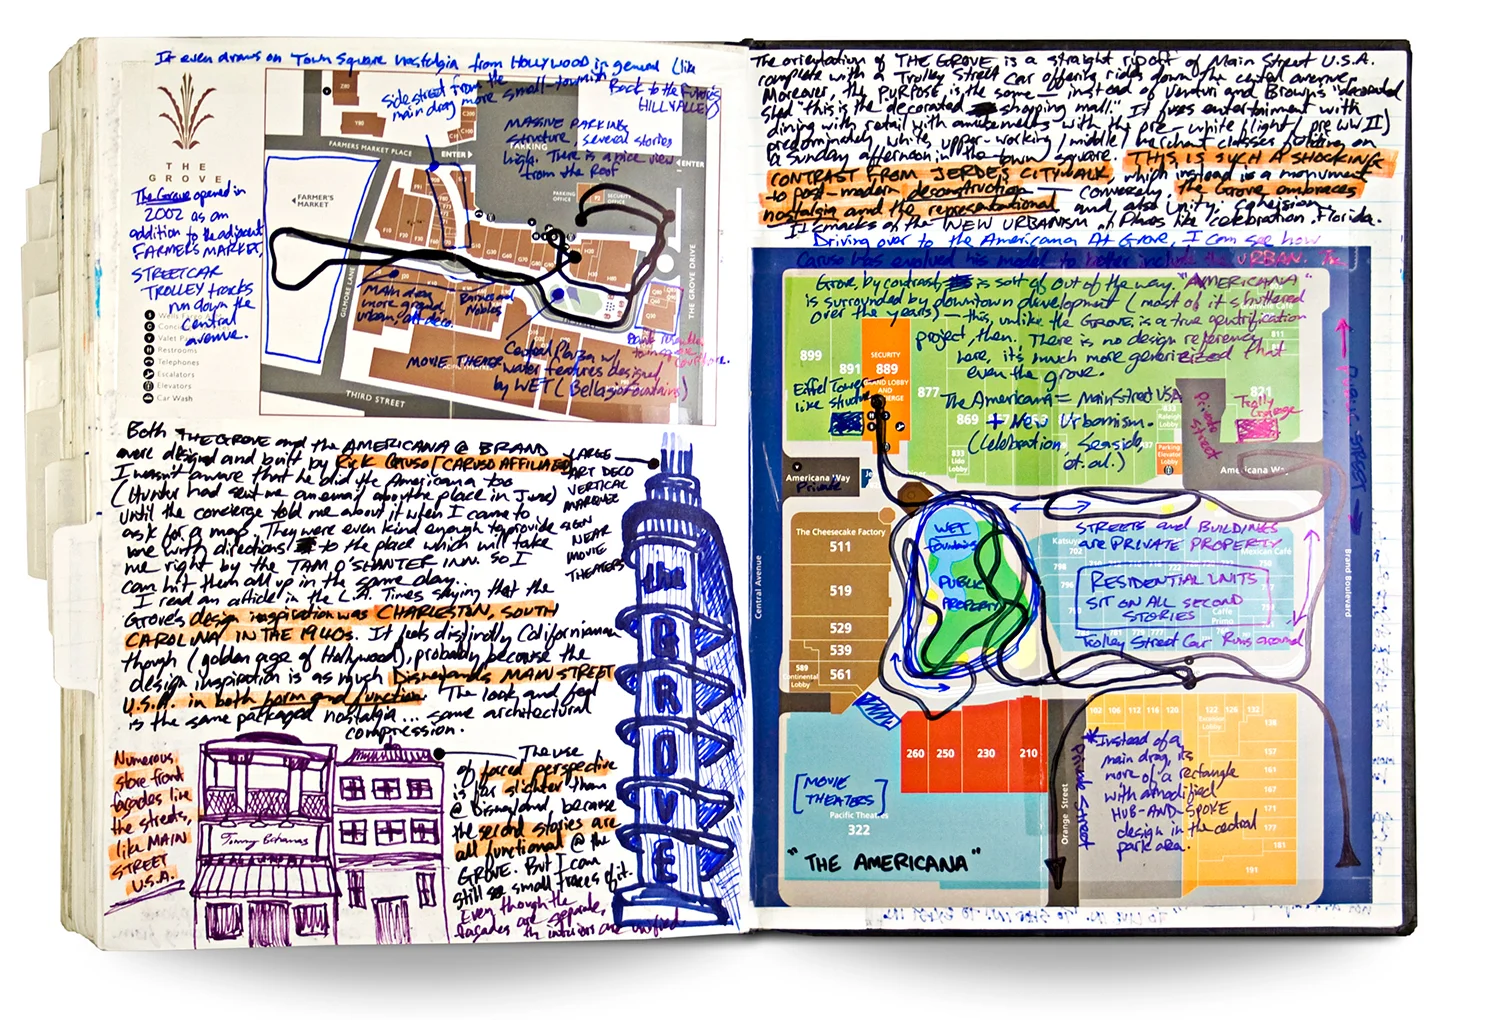 It even draws on Town Square nostalgia from HOLLYWOOD in general (like
Back to the Future's
HILL VALLEY)
side street from the
main drag more small-town
THE
GROVE
The Grove opened in
2002 as an
addition to the adjacent
FARMERS MARKET,
STREETCAR
TROLLEY tracks
run down the
central
avenue.
Restrooms
Telephones
Escalators
Elevators
Car Wash
FARMERS MARKET PLACE
ENTER
PARKING
ENTER
MASSIVE PARKING
structure, several stories
high. There is a nice view
from the roof
FARMER'S
MARKET
GILMORE LANE
THE GROVE DRIVE
SECURITY
OFFICE
Main drag
more grand,
urban, art deco.
Barnes and
Nobles
MOVIE THEATER
Central Plaza w/
water features designed
by WET (Bellagio Fountains)
THIRD STREET
Both THE GROVE and the AMERICANA @ BRAND
were designed and built by Rick Caruso/CARUSO AFFILIATED
I wasn't aware that he did the Americana too
(Hunter had sent me an email about the place in June)
until the concierge told me about it when I came to
ask for a map. They were even kind enough to provide
me with directions to the place which will take
me right by the TAM O'SHANTER INN. So I
can hit them all up in the same day.
I read an article in the L.A. Times saying that the
Grove's design inspiration was CHARLESTON, SOUTH
CAROLINA IN THE 1940s. It feels distinctly Californian
though (golden age of Hollywood), probably because the
design inspiration is as much Disneyland's MAIN STREET
U.S.A. in both form and function. The look and feel
is the same packaged nostalgia... same architectural
compression.
LARGE
ART DECO
VERTICAL
MARQUEE
SIGN
NEAR
MOVIE
THEATERS
the
GROVE
Numerous
store front
facades line
the streets,
like MAIN
STREET
U.S.A.
Tommy Bahamas
The use
of forced perspective
is far slighter than
@ Disneyland, because
the second stories are
all functional @ the
GROVE. But I can
still see small traces of it.
Even though the
facades are separate,
the interiors are unified.
The orientation of THE GROVE is a straight ripoff of Main Street U.S.A.
complete with a Trolley Street Car offering rides down the central avenue.
Moreover, the PURPOSE is the same — instead of Venturi and Brown's "decorated
shed" this is the "decorated shopping mall." It fuses entertainment with
dining with retail with amusements with the pre-white flight/pre WWII)
predominately white, upper-working/middle/merchant classes outing on
a Sunday afternoon in the town square. THIS IS SUCH A SHOCKING
CONTRAST FROM JERDE'S CITYWALK, which instead is a monument
to post-modern deconstruction — conversely, the Grove embraces
nostalgia and the representational and also unity, cohesion.
It smacks of the NEW URBANISM of places like Celebration, Florida.
Driving over to the Americana At Grove, I can see how
Caruso has evolved his model to better include the URBAN. The
Grove by contrast is sort of out of the way. "AMERICANA"
is surrounded by downtown development (most of it shuttered
over the years) — this, unlike the GROVE, is a true gentrification
project, then. There is no design reference
here, it's much more genericized that
even the grove.
The Americana = Main Street USA
+ New Urbanism.
(Celebration, Seaside,
et. al.)
Eiffel Tower
like structure
899
891
SECURITY
889
877
869
833
Lido
Lobby
Parking
Elevator
Lobby
821
811
Private Street
Trolly
Garage
PUBLIC STREET
Americana Way
Private
Americana Way
The Cheesecake Factory
511
519
529
539
561
Central Avenue
Brand Boulevard
WET
Fountains
PUBLIC
PROPERTY
STREETS and BUILDINGS
are PRIVATE PROPERTY
RESIDENTIAL UNITS
SIT ON ALL SECOND
STORIES
Trolley Street Car Runs around
260 250 230 210
[MOVIE
THEATERS]
Pacific Theatres
322
"THE AMERICANA"
Orange Street
Private Street
102 106 112 116 120 122 126 132
157
161
167
171
177
181
191
*Instead of a
main drag, its
more of a rectangle
with a modified
HUB-AND-SPOKE
design in the central
park area.